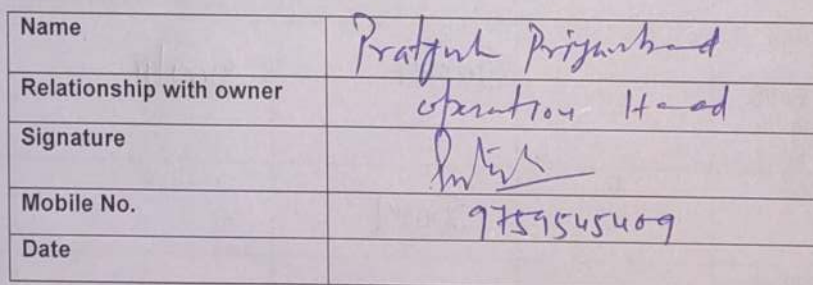 Name Pratyush
Relationship with owner operation Head
Signature
Mobile No. 9759545409
Date